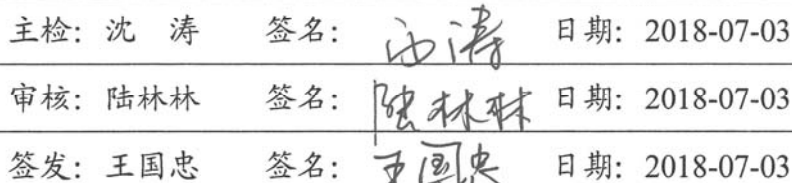 主检: 沈 涛 签名: 沈涛 日期: 2018-07-03
审核: 陆林林 签名: 陆林林 日期: 2018-07-03
签发: 王国忠 签名: 王国忠 日期: 2018-07-03